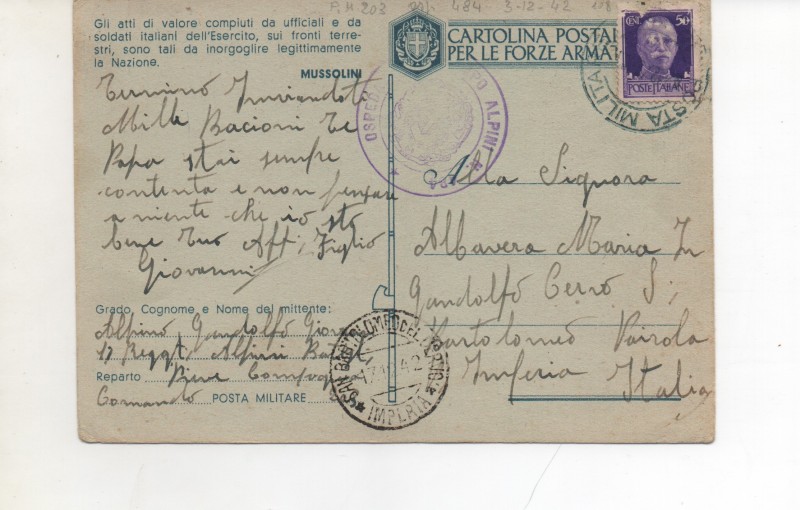 P.M 203 484 3-12-42
Gli atti di valore compiuti da ufficiali e da
soldati italiani dell'Esercito, sui fronti terre-
stri, sono tali da inorgoglire legittimamente
la Nazione.
MUSSOLINI
Termino Inviandoti
Mille Bacioni Te
Papa stai sempre
contenta e non pensare
a niente che io sto
bene Tuo Aff. Figlio
Giovanni
Grado, Cognome e Nome del mittente:
Alpino Gandolfo Giov
Reggt Alpini Batt
Reparto Pieve Compagnia
Comando POSTA MILITARE
CARTOLINA POSTAL
PER LE FORZE ARMAT
CENT. 50
POSTE ITALIANE
POSTA MILITA
OSPED PO ALPINI
Alla Signora
Albavera Maria In
Gandolfo Cervo S;
Bartolomeo
Imperia Italia
SAN BARTOLOMEO DEL CERVO
42
IMPERIA